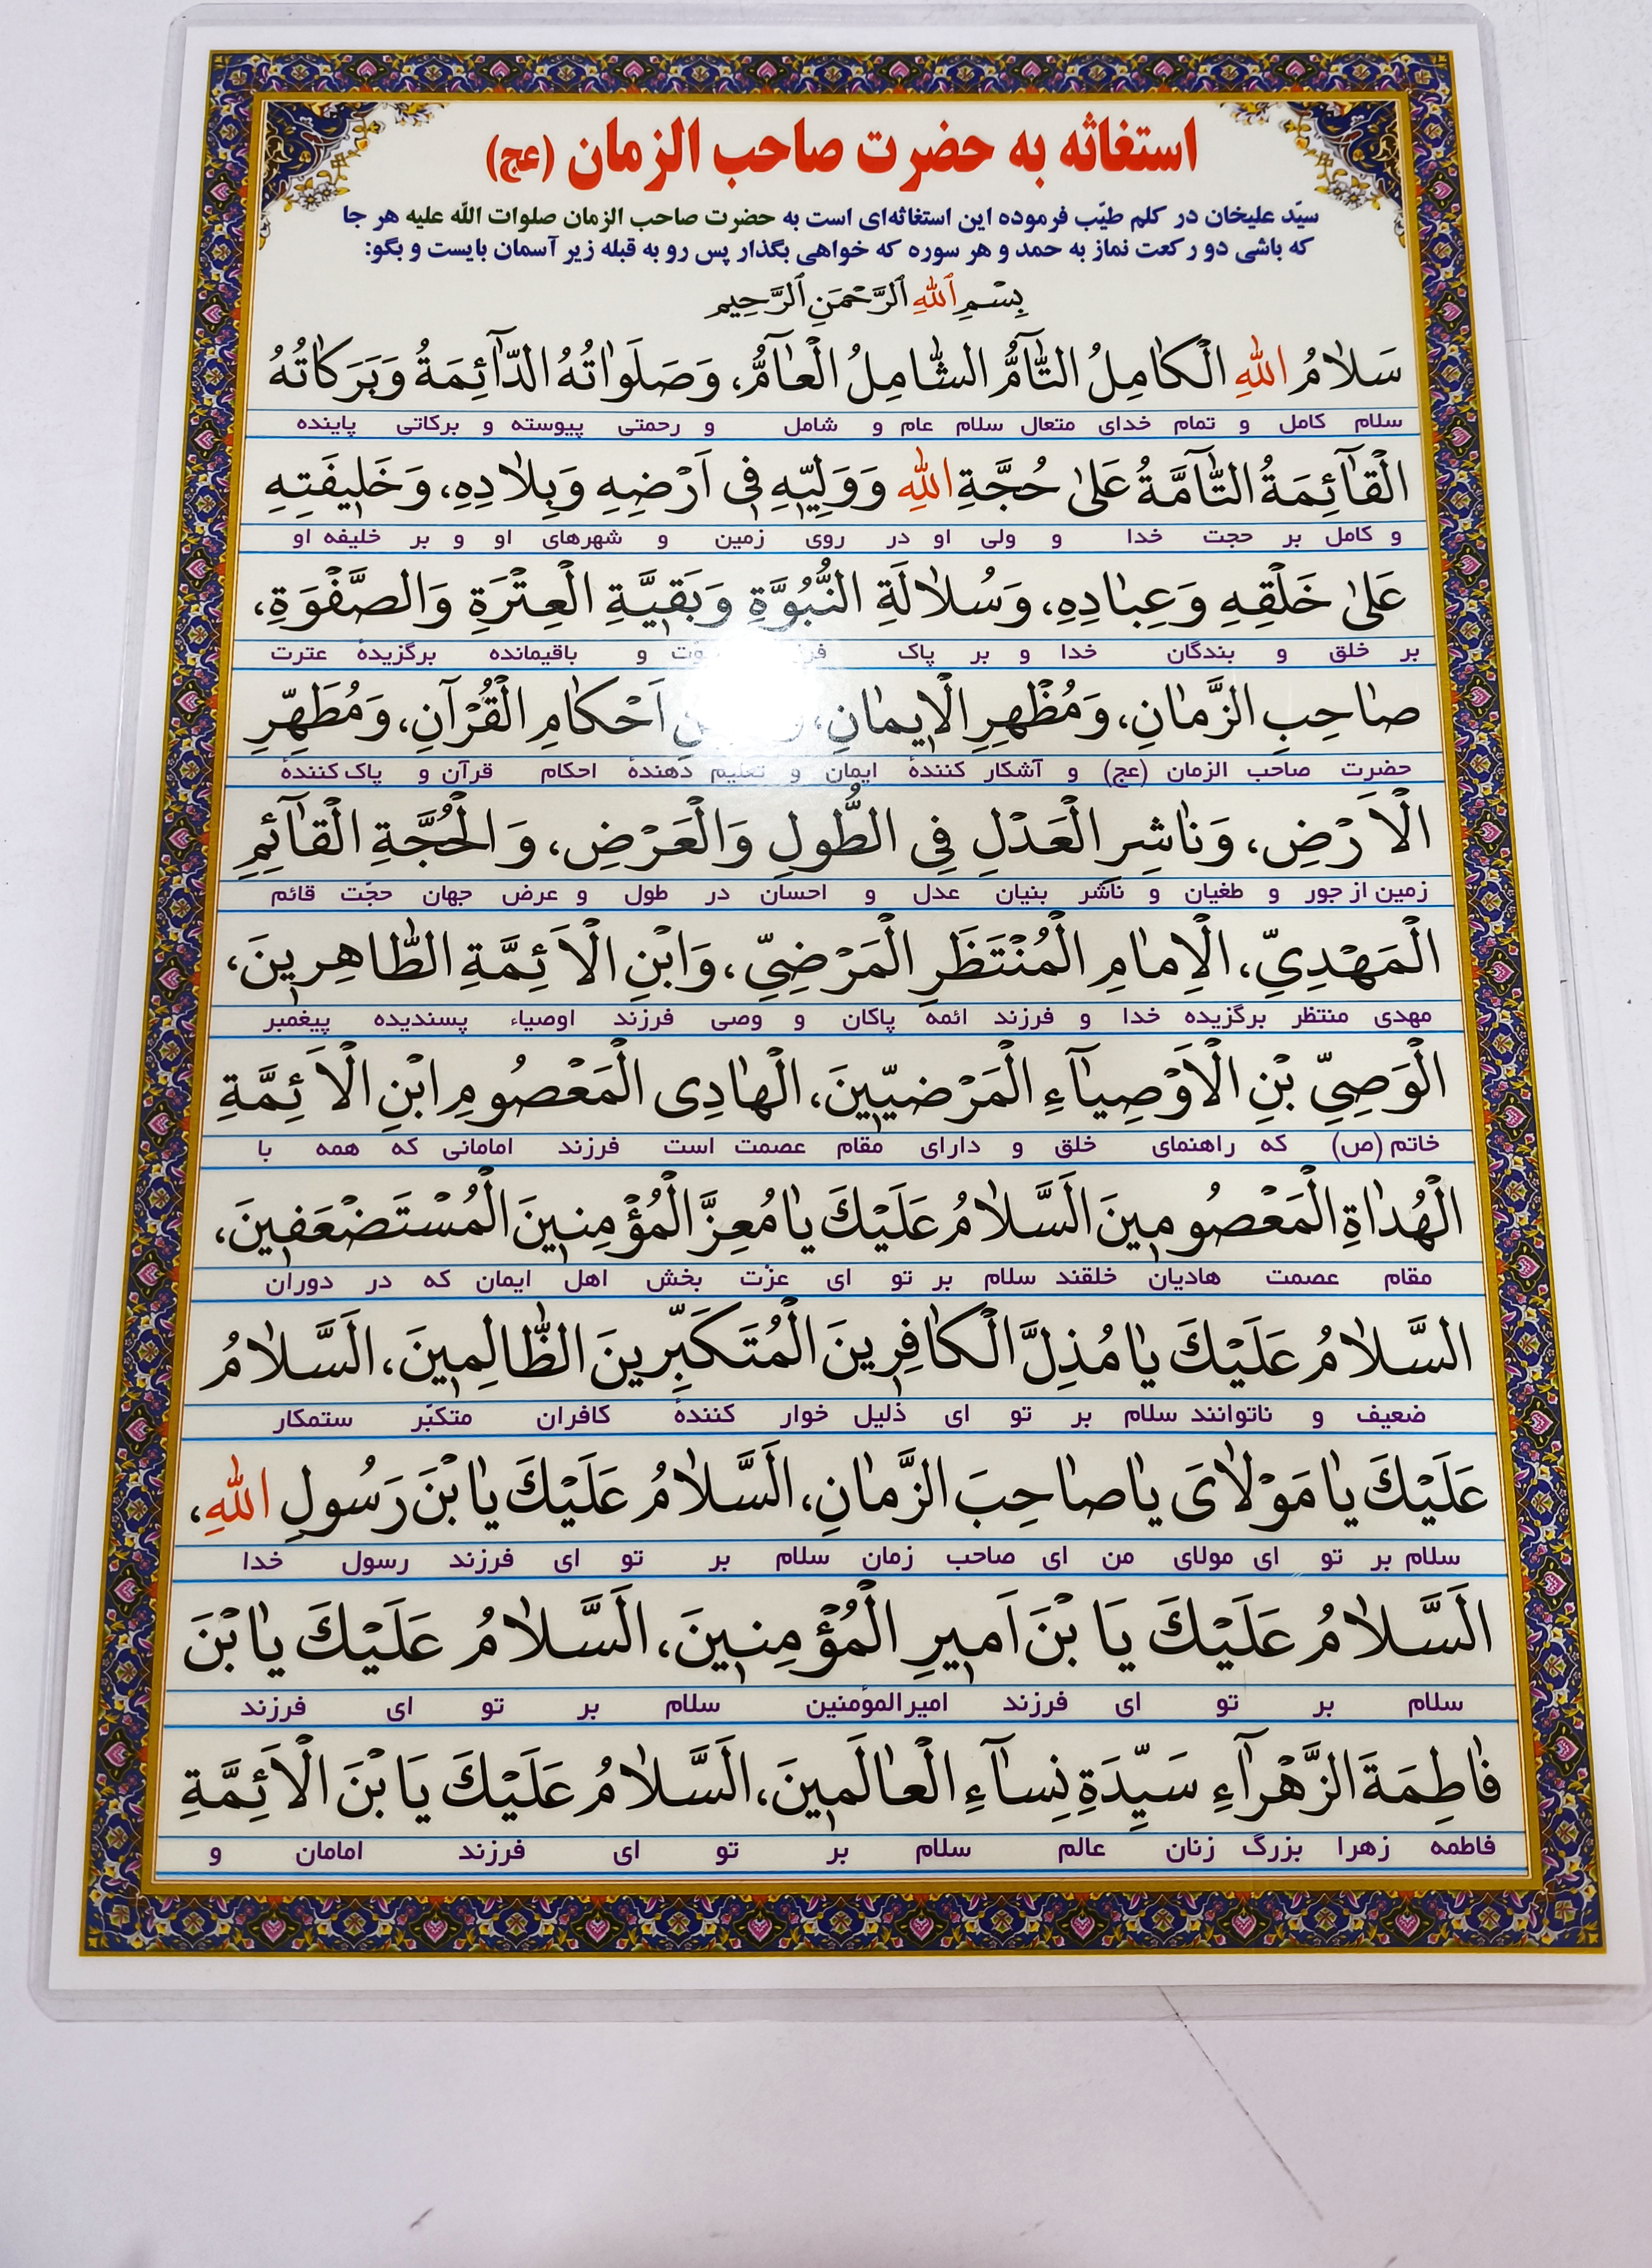 استغاثه به حضرت صاحب الزمان (عج)
سیّد علیخان در کلم طیّب فرموده این استغاثه‌ای است به حضرت صاحب الزمان صلوات اللّه علیه هر جا
که باشی دو رکعت نماز به حمد و هر سوره که خواهی بگذار پس رو به قبله زیر آسمان بایست و بگو:
بِسْمِ ٱللهِ ٱلرَّحْمَنِ ٱلرَّحِيمِ
سَلاٰمُ اللهِ الْكٰامِلُ التّٰآمُّ الشّٰامِلُ الْعٰآمُّ، وَصَلَوٰاتُهُ الدّٰآئِمَةُ وَبَرَكٰاتُهُ
سلام کامل و تمام خدای متعال سلام عام و شامل و رحمتی پیوسته و برکاتی پاینده
الْقٰآئِمَةُ التّٰآمَّةُ عَلىٰ حُجَّةِ اللهِ وَوَلِيِّهِ فِي اَرْضِهِ وَبِلاٰدِهِ، وَخَلِيفَتِهِ
و کامل بر حجت خدا و ولی او در روی زمین و شهرهای او و بر خلیفه او
عَلىٰ خَلْقِهِ وَعِبٰادِهِ، وَسُلاٰلَةِ النُّبُوَّةِ وَبَقِيَّةِ الْعِتْرَةِ وَالصَّفْوَةِ،
بر خلق و بندگان خدا و بر پاک و باقیمانده برگزیدهٔ عترت
صٰاحِبِ الزَّمٰانِ، وَمُظْهِرِ الْاِيمٰانِ، اَحْكٰامِ الْقُرْآنِ، وَمُطَهِّرِ
حضرت صاحب الزمان (عج) و آشکار کنندهٔ ایمان و تعلیم دهندهٔ احکام قرآن و پاک کنندهٔ
الْاَرْضِ، وَنٰاشِرِ الْعَدْلِ فِي الطُّولِ وَالْعَرْضِ، وَالْحُجَّةِ الْقٰآئِمِ
زمین از جور و طغیان و ناشر بنیان عدل و احسان در طول و عرض جهان حجّت قائم
الْمَهْدِيِّ، الْاِمٰامِ الْمُنْتَظَرِ الْمَرْضِيِّ، وَابْنِ الْاَئِمَّةِ الطّٰاهِرِينَ،
مهدی منتظر برگزیده خدا و فرزند ائمه پاکان و وصی فرزند اوصیاء پسندیده پیغمبر
الْوَصِيِّ بْنِ الْاَوْصِيٰآءِ الْمَرْضِيّينَ، الْهٰادِى الْمَعْصُومِ ابْنِ الْاَئِمَّةِ
خاتم (ص) که راهنمای خلق و دارای مقام عصمت است فرزند امامانی که همه با
الْهُدٰاةِ الْمَعْصُومِينَ اَلسَّلاٰمُ عَلَيْكَ يٰا مُعِزَّ الْمُؤْمِنِينَ الْمُسْتَضْعَفِينَ،
مقام عصمت هادیان خلقند سلام بر تو ای عزّت بخش اهل ایمان که در دوران
السَّلاٰمُ عَلَيْكَ يٰا مُذِلَّ الْكٰافِرِينَ الْمُتَكَبِّرِينَ الظّٰالِمِينَ، اَلسَّلاٰمُ
ضعیف و ناتوانند سلام بر تو ای ذلیل خوار کنندهٔ کافران متکبّر ستمکار
عَلَيْكَ يٰا مَوْلاٰىَ يٰا صٰاحِبَ الزَّمٰانِ، اَلسَّلاٰمُ عَلَيْكَ يٰا بْنَ رَسُولِ اللهِ،
سلام بر تو ای مولای من ای صاحب زمان سلام بر تو ای فرزند رسول خدا
اَلسَّلاٰمُ عَلَيْكَ يَا بْنَ اَمِيرِ الْمُؤْمِنِينَ، اَلسَّلاٰمُ عَلَيْكَ يٰا بْنَ
سلام بر تو ای فرزند امیرالمؤمنین سلام بر تو ای فرزند
فٰاطِمَةَ الزَّهْرٰآءِ سَيِّدَةِ نِسٰآءِ الْعٰالَمِينَ، اَلسَّلاٰمُ عَلَيْكَ يَا بْنَ الْاَئِمَّةِ
فاطمه زهرا بزرگ زنان عالم سلام بر تو ای فرزند امامان و